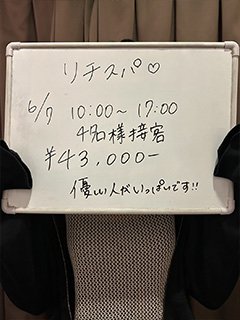 リチスパ♡
6/7 10:00～17:00
4名様接客
¥43,000-
優しい人がいっぱいです!!